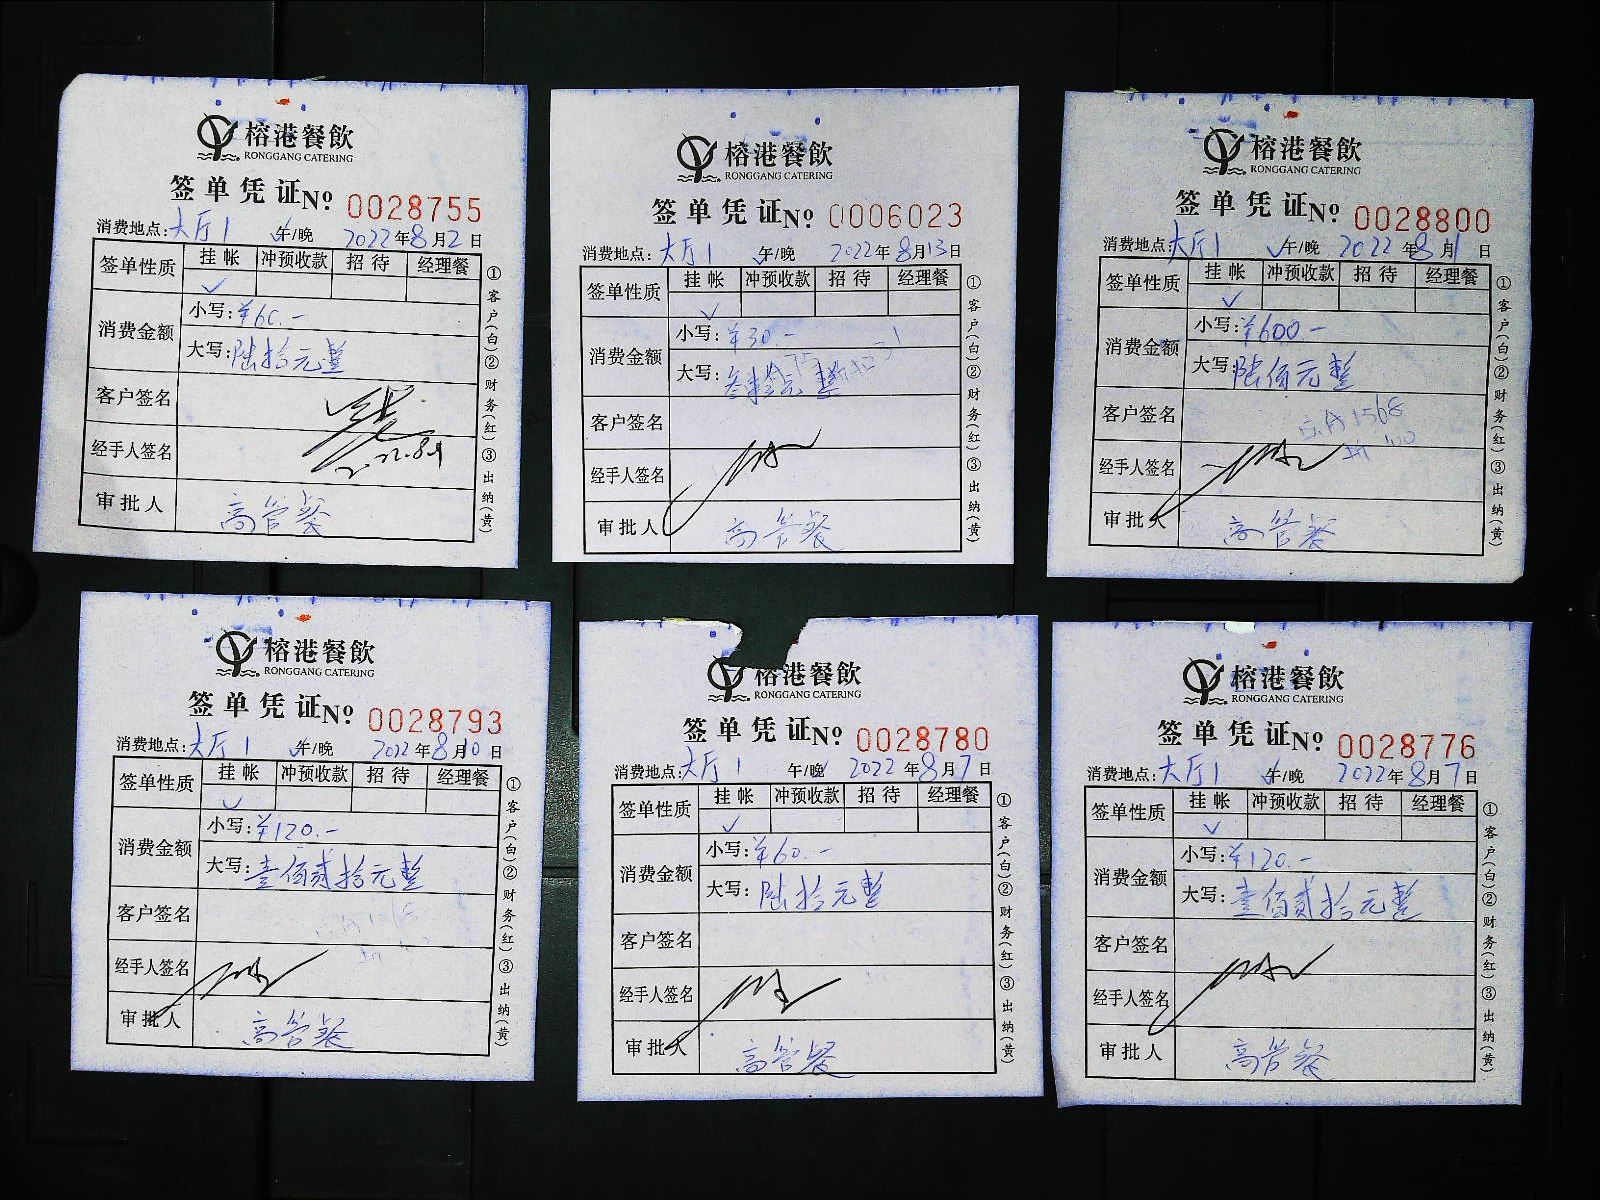 榕港餐飲
RONGGANG CATERING
签单凭证№ 0028755
消费地点:大厅1 午/晚 2022年8月2日
签单性质 挂帐 冲预收款 招待 经理餐
✓
消费金额 小写:¥60.-
大写:陆拾元整
客户签名
经手人签名
审批人 高管餐
①客户(白)②财务(红)③出纳(黄)
榕港餐飲
RONGGANG CATERING
签单凭证№ 0006023
消费地点:大厅1 午/晚 2022年8月13日
签单性质 挂帐 冲预收款 招待 经理餐
✓
消费金额 小写:¥30-
大写:叁拾元整
客户签名
经手人签名
审批人 高管餐
①客户(白)②财务(红)③出纳(黄)
榕港餐飲
RONGGANG CATERING
签单凭证№ 0028800
消费地点:大厅1 午/晚 2022年8月1日
签单性质 挂帐 冲预收款 招待 经理餐
✓
消费金额 小写:¥600-
大写:陆佰元整
客户签名
经手人签名
审批人 高管餐
①客户(白)②财务(红)③出纳(黄)
榕港餐飲
RONGGANG CATERING
签单凭证№ 0028793
消费地点:大厅1 午/晚 2022年8月10日
签单性质 挂帐 冲预收款 招待 经理餐
✓
消费金额 小写:¥120.-
大写:壹佰贰拾元整
客户签名
经手人签名
审批人 高管餐
①客户(白)②财务(红)③出纳(黄)
榕港餐飲
RONGGANG CATERING
签单凭证№ 0028780
消费地点:大厅1 午/晚 2022年8月7日
签单性质 挂帐 冲预收款 招待 经理餐
✓
消费金额 小写:¥60.-
大写:陆拾元整
客户签名
经手人签名
审批人 高管餐
①客户(白)②财务(红)③出纳(黄)
榕港餐飲
RONGGANG CATERING
签单凭证№ 0028776
消费地点:大厅1 午/晚 2022年8月7日
签单性质 挂帐 冲预收款 招待 经理餐
✓
消费金额 小写:¥120.-
大写:壹佰贰拾元整
客户签名
经手人签名
审批人 高管餐
①客户(白)②财务(红)③出纳(黄)